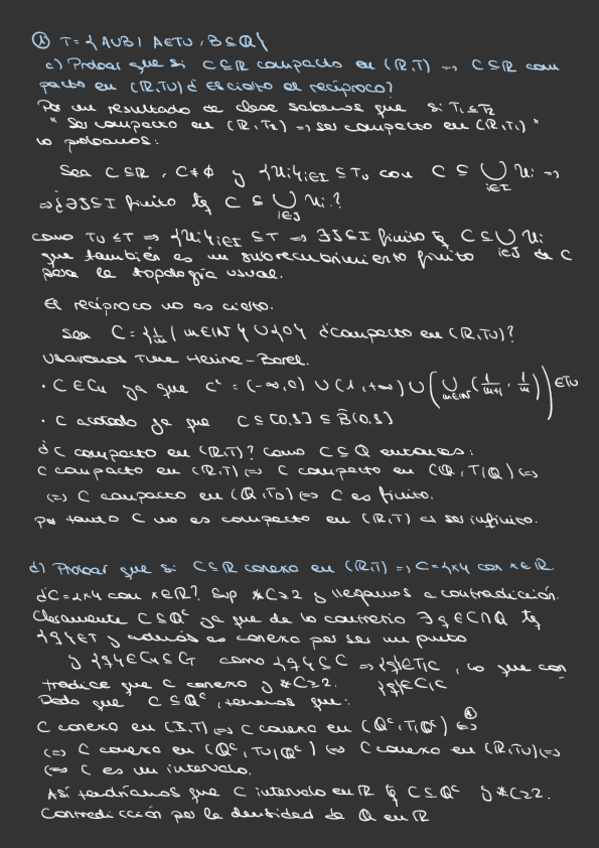 ① T = {A∪B | A∈Tu, B⊆Q}
c) Probar que si C⊆R compacto en (R,T) ⇒ C⊆R com
pacto en (R,Tu) ¿Es cierto el recíproco?
Por un resultado de clase sabemos que si T₁≤T₂
"Ser compacto en (R,T₂) ⇒ ser compacto en (R,T₁)"
lo probamos:
Sea C⊆R, C≠∅ y {Ui}i∈I ⊆ Tu con C ⊆ ⋃i∈I Ui ⇒
⇒ ¿∃J⊆I finito tq C ⊆ ⋃i∈J Ui?
como Tu ≤ T ⇒ {Ui}i∈I ⊆ T ⇒ ∃J⊆I finito tq C ⊆ ⋃i∈J Ui
que también es un subrecubrimiento finito de C
para la topología usual.
El recíproco no es cierto.
Sea C = {1/m | m∈N} ∪ {0} ¿compacto en (R,Tu)?
Usaremos Tma Heine-Borel.
• C∈Cu ya que Cᶜ = (-∞,0) ∪ (1,+∞) ∪ (⋃m∈N (1/m+1, 1/m)) ∈Tu
• C acotado ya que C ⊆ [0,1] ⊆ B̄(0,1)
¿C compacto en (R,T)? Como C⊆Q entonces:
C compacto en (R,T) ⇔ C compacto en (Q, T|Q) ⇔
⇔ C compacto en (Q,TD) ⇔ C es finito.
por tanto C no es compacto en (R,T) al ser infinito.
d) Probar que si C⊆R conexo en (R,T) ⇒ C={x} con x∈R.
¿C={x} con x∈R? Sup #C≥2 y llegamos a contradicción.
Claramente C⊆Qᶜ ya que de lo contrario ∃q∈C∩Q tq
{q}∈T y además es conexo por ser un punto
y {q}∈Cu⊆CT como {q}⊆C ⇒ {q}∈T|C, lo que con
tradice que C conexo y #C≥2. {q}∈C|C
Dado que C⊆Qᶜ, tenemos que:
C conexo en (I,T) ⇔ C conexo en (Qᶜ,T|Qᶜ) ⇔①
⇔ C conexo en (Qᶜ, Tu|Qᶜ) ⇔ C conexo en (R,Tu) ⇔
⇔ C es un intervalo.
Así tendríamos que C intervalo en R tq C⊆Qᶜ y #C≥2.
Contradicción por la densidad de Q en R